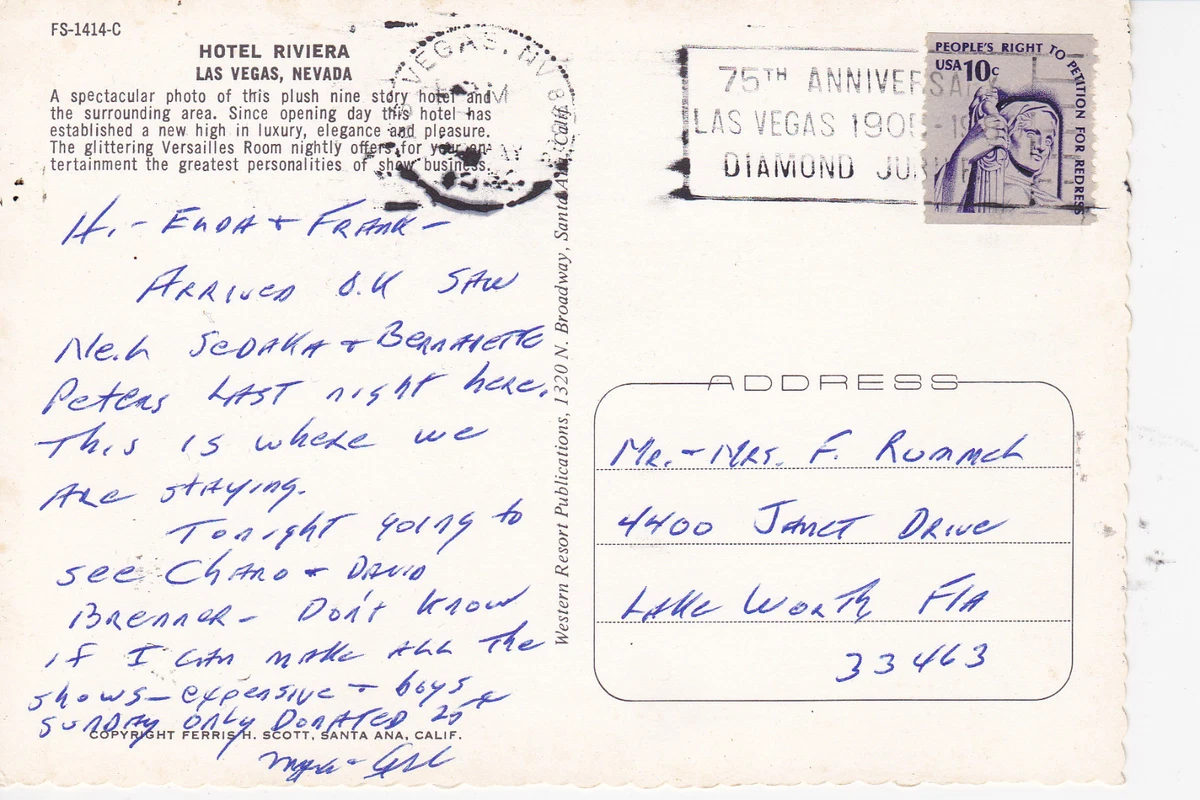 FS-1414-C
HOTEL RIVIERA
LAS VEGAS, NEVADA
A spectacular photo of this plush nine story hotel and
the surrounding area. Since opening day this hotel has
established a new high in luxury, elegance and pleasure.
The glittering Versailles Room nightly offers for your en-
tertainment the greatest personalities of show business.
VEGAS, NV
75TH ANNIVERSA
LAS VEGAS 1905-19
DIAMOND JU
PEOPLE'S RIGHT TO PETITION FOR REDRESS
USA 10c
Hi - Enda + Frank -
Arrived O.K Saw
Neil Sedaka + Bernadette
Peters Last night here.
This is where we
Are staying.
Tonight going to
see Charo + David
Brenner - Don't know
if I can make all the
shows - expensive - boys
Sunday only Donated
COPYRIGHT FERRIS H. SCOTT, SANTA ANA, CALIF.
Western Resort Publications, 1320 N. Broadway, Santa Ana, Calif.
ADDRESS
Mr. + Mrs. F. Rummel
4400 Janet Drive
Lake Worth Fla
33463